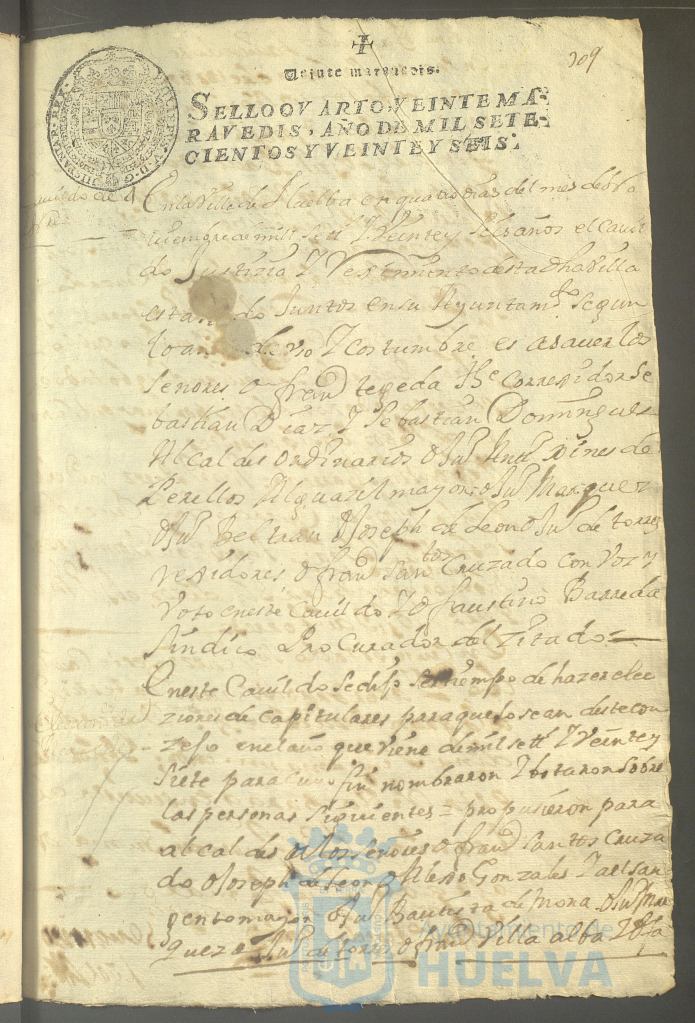 309
Veinte maravedis.
SELLO QVARTO, VEINTE MA-
RAVEDIS, AÑO DE MIL SETE-
CIENTOS Y VEINTE Y SEIS.
PHILIPPVS V D G HISPANIAR REX
Cavildo de 4
En la Villa de Huelba en quatro dias del mes de
de mill sett.s Y Veinte y seis años el Cavil
do Justizia Y Reximiento desta dha Villa
estando Juntos en su Ayuntam.to segun
lo an de vso Y costumbre es a saver los
señores Dn fran.co texeda The Correxidor Se
bastian Diaz Y Sebastian Domingues
Alcaldes ordinarios Dn Ju.o Ximenes de
Perellos Alguazil mayor Dn Ju.o Marquez
Dn Ju.o Beltran Dn Joseph de Leon Dn Ju.o de torres
rexidores Dn fran.co Santos Cruzado con voz y
Voto en este Cavildo Y Dn faustino Barreda
Sindico Procurador del zitado
En este Cavildo se dijo ser tiempo de hazer elec
ziones de capitulares para que lo sean deste con
zejo en el año que viene de mil sett.s Y Veinte y
siete para cuio fin nombraron Y botaron sobre
las personas siguientes = propusieron para
alcaldes a los señores Dn fran.co Santos Cruza
do Dn Joseph de Leon Dn Alonso Gonzales Y al sar
gento mayor Dn Ju.o Bautista de Mora Dn Ju.o Mar
quez Dn Ju.o de torres Dn fran.co Villa alba Y Dn
Ayuntamiento de
HUELVA